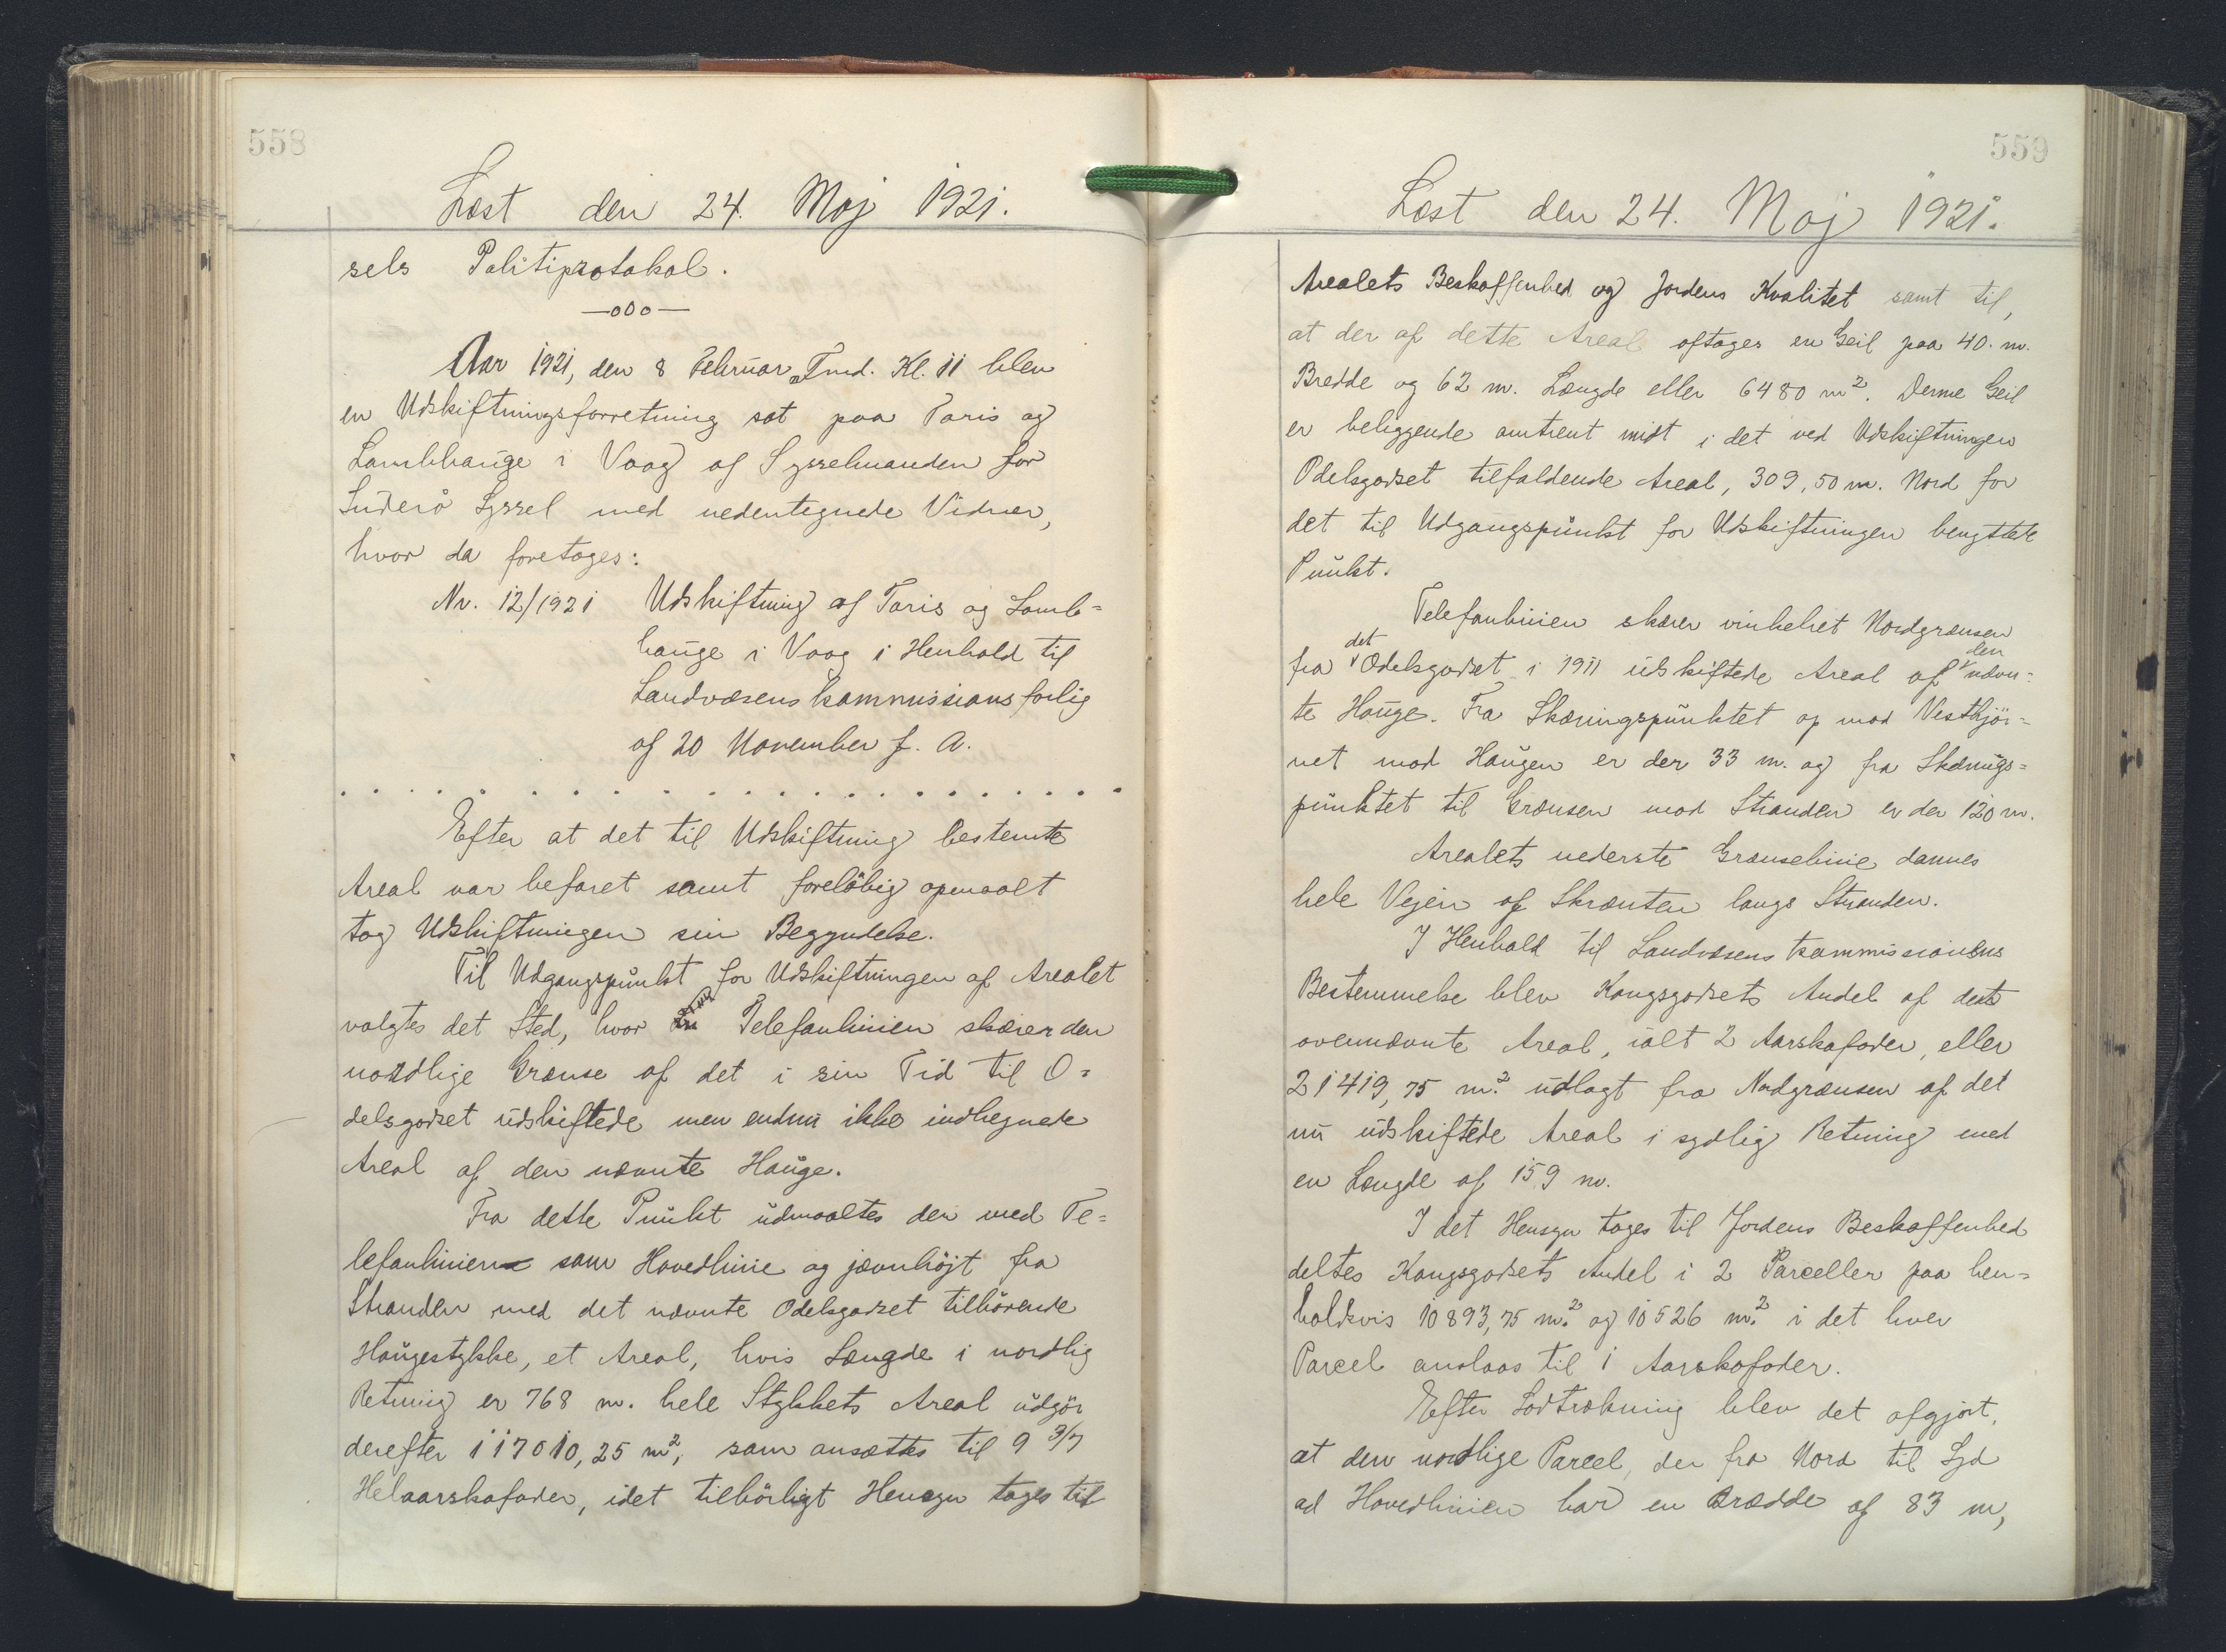 558
Læst den 24. Maj 1921.
sels Politiprotokol.
—oOo—
Aar 1921, den 8 Februar Fmd. Kl. 11 blev
en Udskiftningsforretning sat paa Toris og
Lambhauge i Vaag af Sysselmanden for
Suderø Syssel med nedentegnede Vidner,
hvor da foretoges:
Nr. 12/1921 Udskiftning af Toris og Lamb=
hauge i Vaag i Henhold til
Landvæsenskommissionsforlig
af 20 November f. A.
. . . . . . . . . . . . . . . . . . . .
Efter at det til Udskiftning bestemte
Areal var befaret samt foreløbig opmaalt
tog Udskiftningen sin Begyndelse.
Til Udgangspunkt for Udskiftningen af Arealet
valgtes det Sted, hvor Telefonlinien skærer den
nordlige Grænse af det i sin Tid til O=
delsgodset udskiftede men endnu ikke indhegnede
Areal af den nævnte Hauge.
Fra dette Punkt udmaaltes der med Te=
lefonlinien som Hovedlinie og jævnhøjt fra
Stranden med det nævnte Odelsgodset tilhørende
Haugestykke, et Areal, hvis Længde i nordlig
Retning er 768 m. hele Stykkets Areal udgør
derefter 117010,25 m², som ansættes til 9 3/7
Helaarskofoder, idet tilbørligt Hensyn toges til
559
Læst den 24. Maj 1921.
Arealets Beskaffenhed og Jordens Kvalitet samt til,
at der af dette Areal aftages en Geil paa 40. m.
Bredde og 62 m. Længde eller 6480 m². Denne Geil
er beliggende omtrent midt i det ved Udskiftningen
Odelsgodset tilfaldende Areal, 309,50 m. Nord for
det til Udgangspunkt for Udskiftningen benyttede
Punkt.
Telefonlinien skærer vinkelret Nordgrænsen
fra det Odelsgodset i 1911 udskiftede Areal af den nævn=
te Hauge. Fra Skæringspunktet op mod Vesthjør=
net mod Haugen er der 33 m. og fra Skærings=
punktet til Grænsen mod Stranden er der 120 m.
Arealets nederste Grænselinie dannes
hele Vejen af Skrænten langs Stranden.
I Henhold til Landvæsenskommissionens
Bestemmelse blev Kongsgodsets Andel af dette
ovennævnte Areal, ialt 2 Aarskofoder, eller
21419,75 m.² udlagt fra Nordgrænsen af det
nu udskiftede Areal i sydlig Retning med
en Længde af 159 m.
I det Hensyn toges til Jordens Beskaffenhed
deltes Kongsgodsets Andel i 2 Parceller paa hen=
holdsvis 10893,75 m.² og 10526 m.² i det hver
Parcel ansloas til 1 Aarskofoder.
Efter Lodtrækning blev det afgjort,
at den nordlige Parcel, der fra Nord til Syd
ad Hovedlinien har en Brædde af 83 m,